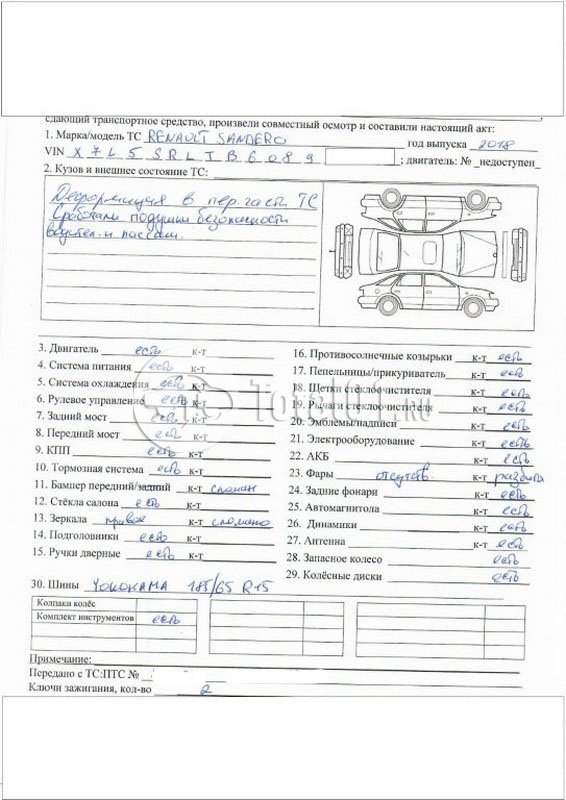 сдающий транспортное средство, произвели совместный осмотр и составили настоящий акт:
1. Марка/модель ТС RENAULT SANDERO год выпуска 2018
VIN X7L5SRLTB6089 ; двигатель: № недоступен
2. Кузов и внешнее состояние ТС:
Деформация в пер. части ТС
Сработали подушки безопасности
водител. и пассаж.
3. Двигатель есть к-т
4. Система питания есть к-т
5. Система охлаждения есть к-т
6. Рулевое управление есть к-т
7. Задний мост есть к-т
8. Передний мост есть к-т
9. КПП есть к-т
10. Тормозная система есть к-т
11. Бампер передний/задний к-т сломан
12. Стёкла салона есть к-т
13. Зеркала правое к-т сломано
14. Подголовники есть к-т
15. Ручки дверные есть к-т
16. Противосолнечные козырьки к-т есть
17. Пепельницы/прикуриватель к-т есть
18. Щетки стеклоочистителя к-т есть
19. Рычаги стеклоочистителя к-т есть
20. Эмблемы/надписи к-т есть
21. Электрооборудование к-т есть
22. АКБ к-т есть
23. Фары отсутств. к-т разбита
24. Задние фонари к-т есть
25. Автомагнитола к-т есть
26. Динамики к-т есть
27. Антенна к-т есть
28. Запасное колесо есть
29. Колёсные диски есть
Total01.ru
30. Шины YOKOHAMA 185/65 R15
Колпаки колёс
Комплект инструментов есть
Примечание:
Передано с ТС:ПТС №
Ключи зажигания, кол-во 2